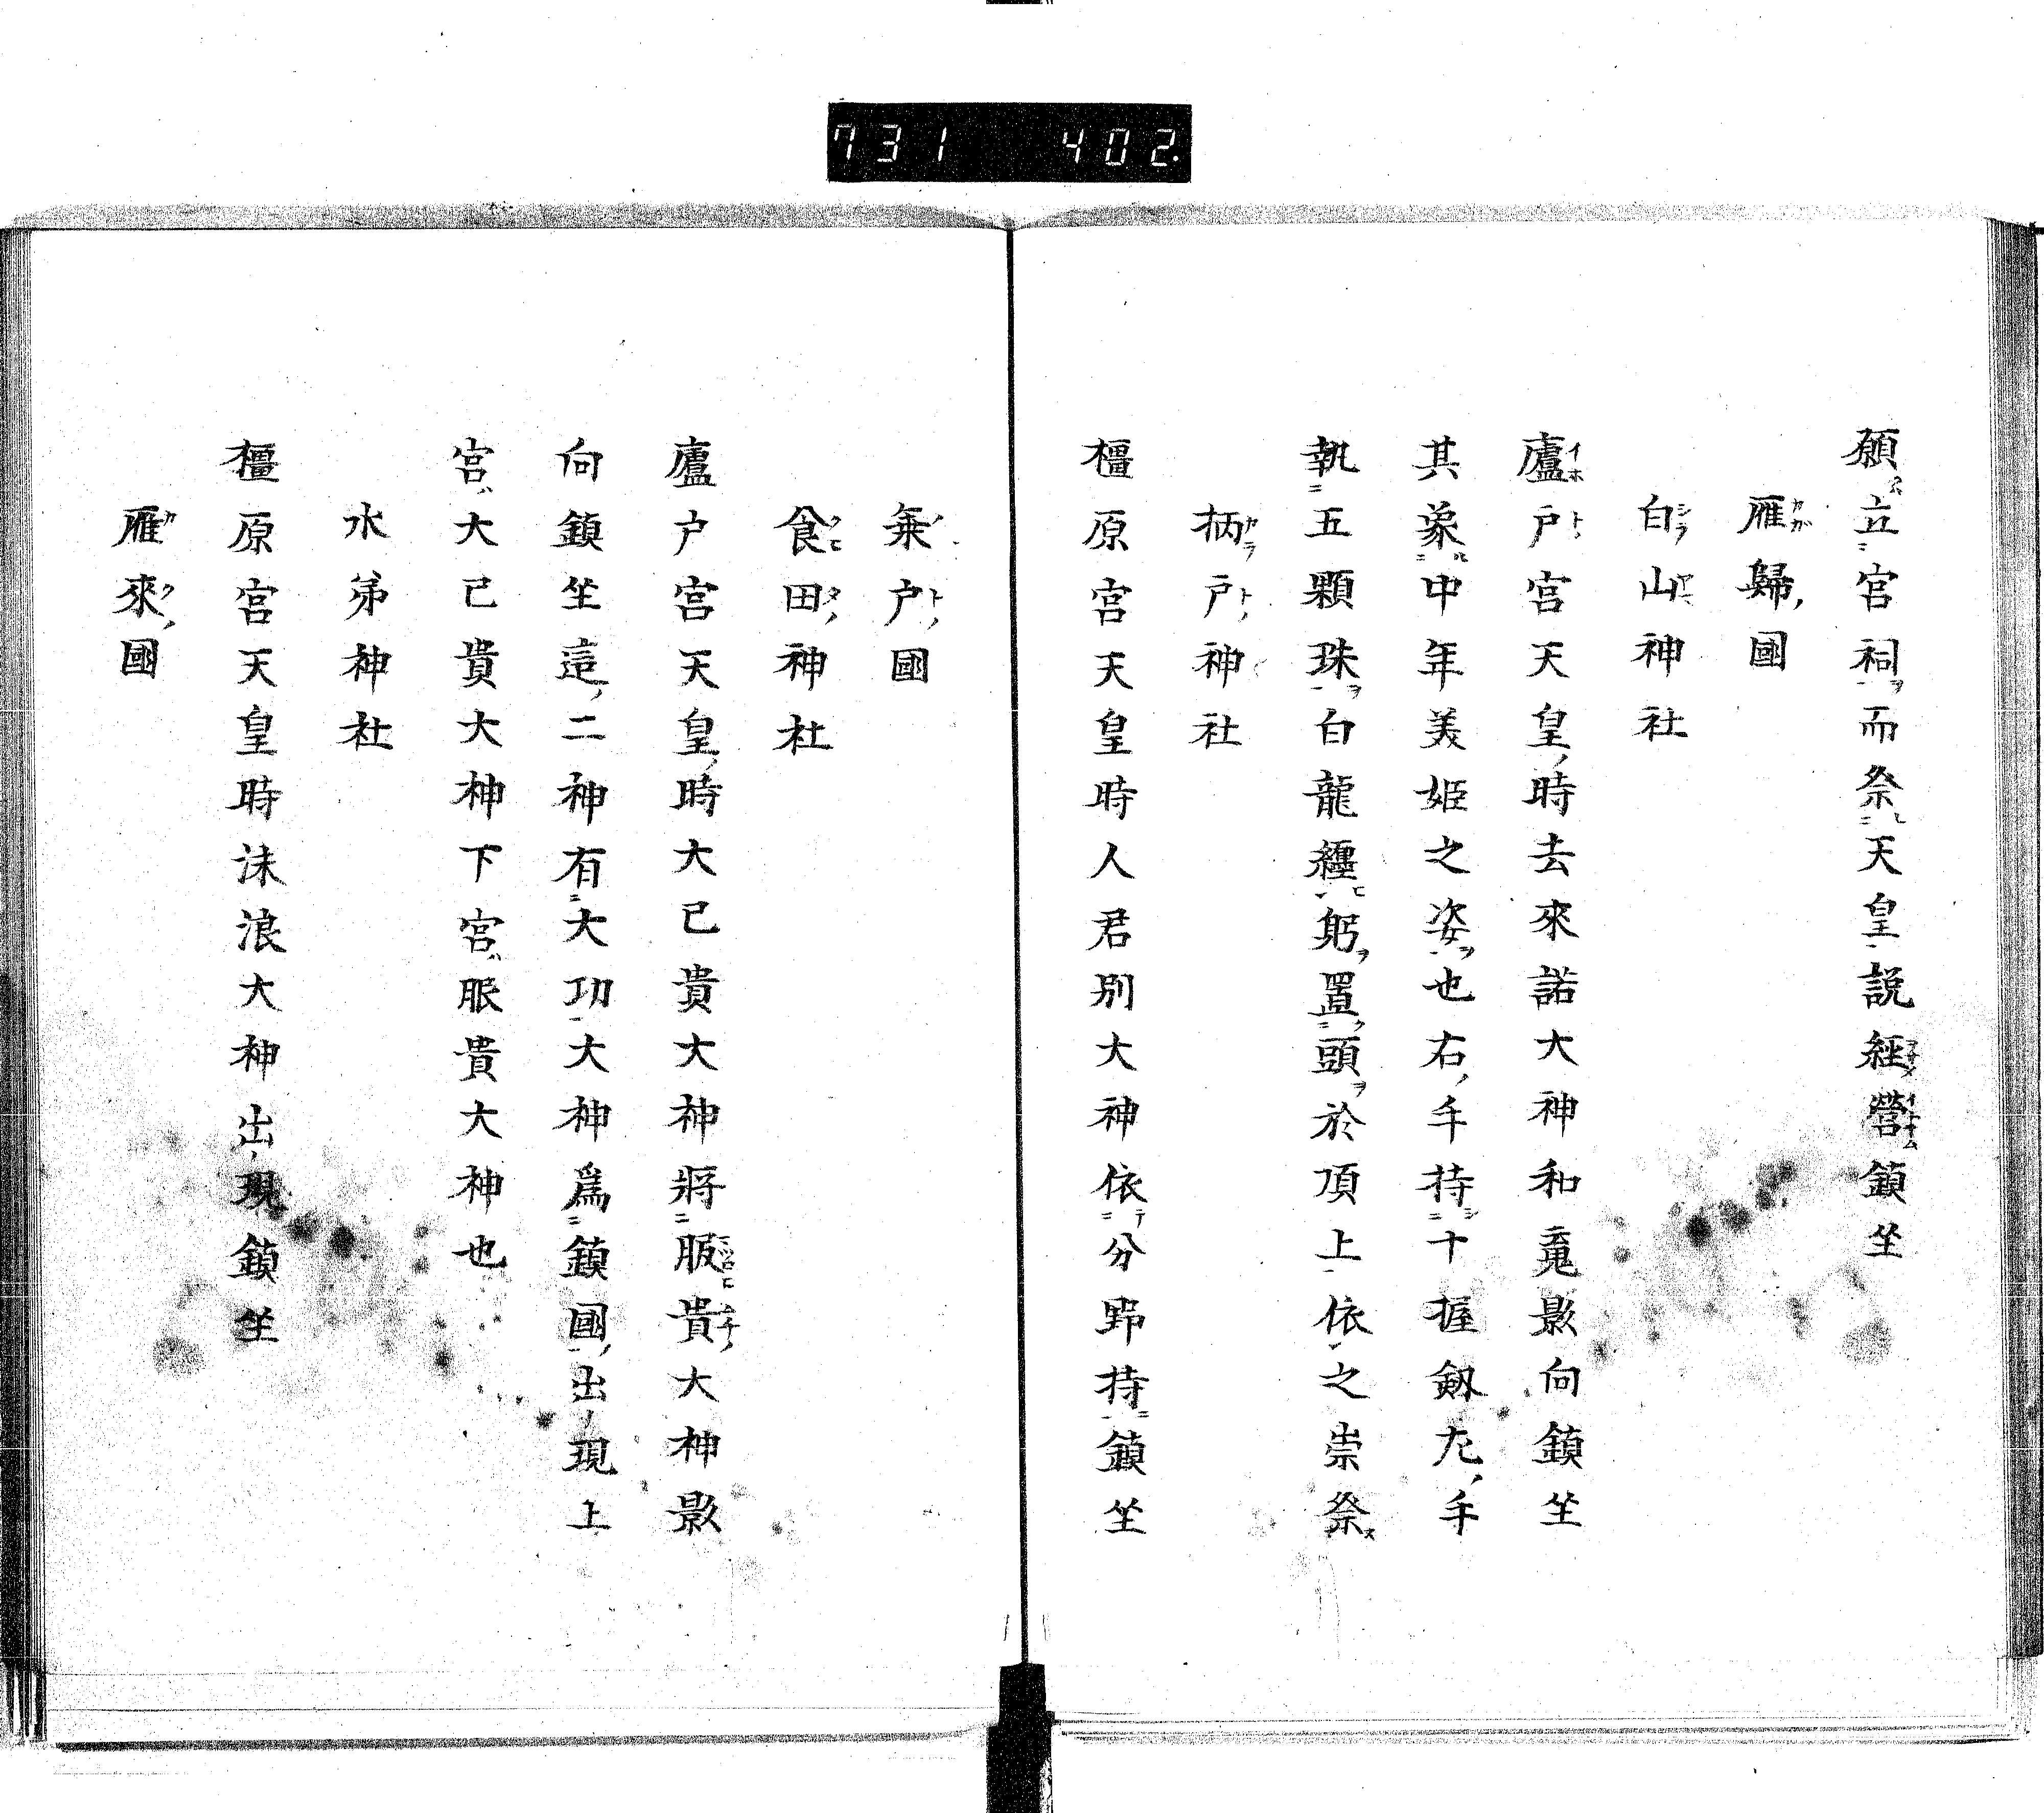 731 402.
願立宮祠而祭天皇説經營鎮坐
雁歸國
白山神社
廬戸宮天皇時去來諾大神和魂影向鎮坐
其象中年美姫之姿也右手持十握劔左手
執五顆珠白龍纏躬置頭於頂上依之崇祭
柄戸神社
橿原宮天皇時人君別大神依分野持鎮坐
乗户國
食田神社
廬户宮天皇時大己貴大神將脤貴大神影
向鎮坐這二神有大功大神爲鎮國出現上
宮大己貴大神下宮脤貴大神也
水弟神社
橿原宮天皇時沫浪大神出現鎮坐
雁來國